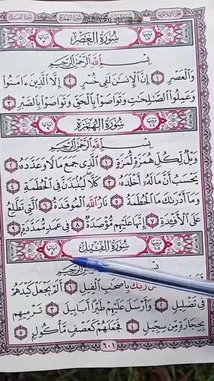 سُورَةُ العَصْرِ
بِسْمِ ٱللَّهِ ٱلرَّحْمَٰنِ ٱلرَّحِيمِ
وَٱلْعَصْرِ ١ إِنَّ ٱلْإِنسَٰنَ لَفِى خُسْرٍ ٢ إِلَّا ٱلَّذِينَ ءَامَنُوا۟
وَعَمِلُوا۟ ٱلصَّٰلِحَٰتِ وَتَوَاصَوْا۟ بِٱلْحَقِّ وَتَوَاصَوْا۟ بِٱلصَّبْرِ ٣
سُورَةُ الهُمَزَةِ
بِسْمِ ٱللَّهِ ٱلرَّحْمَٰنِ ٱلرَّحِيمِ
وَيْلٌ لِّكُلِّ هُمَزَةٍ لُّمَزَةٍ ١ ٱلَّذِى جَمَعَ مَالًا وَعَدَّدَهُۥ ٢
يَحْسَبُ أَنَّ مَالَهُۥٓ أَخْلَدَهُۥ ٣ كَلَّا لَيُنۢبَذَنَّ فِى ٱلْحُطَمَةِ ٤
وَمَآ أَدْرَىٰكَ مَا ٱلْحُطَمَةُ ٥ نَارُ ٱللَّهِ ٱلْمُوقَدَةُ ٦ ٱلَّتِى تَطَّلِعُ
عَلَى ٱلْأَفْـِٔدَةِ ٧ إِنَّهَا عَلَيْهِم مُّؤْصَدَةٌ ٨ فِى عَمَدٍ مُّمَدَّدَةٍۭ ٩
سُورَةُ الفِيلِ
ٱلرَّحْمَٰنِ ٱلرَّحِيمِ
رَبُّكَ بِأَصْحَٰبِ ٱلْفِيلِ ١ أَلَمْ يَجْعَلْ كَيْدَهُمْ
فِى تَضْلِيلٍ ٢ وَأَرْسَلَ عَلَيْهِمْ طَيْرًا أَبَابِيلَ ٣ تَرْمِيهِم
بِحِجَارَةٍ مِّن سِجِّيلٍ ٤ فَجَعَلَهُمْ كَعَصْفٍ مَّأْكُولٍۭ ٥
٦٠١